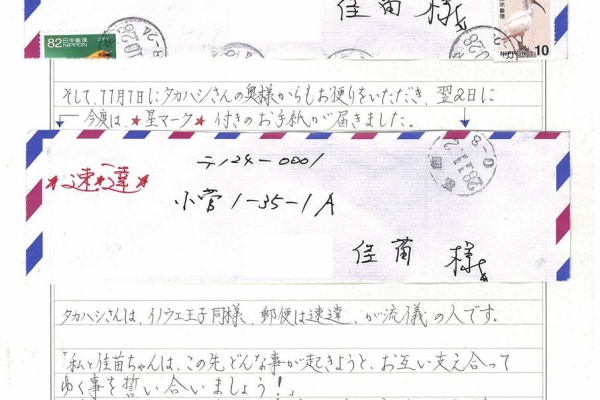 佳苗 様
82 日本郵便
NIPPON
日本郵便
NIPPON 10
そして、11月7日にタカハシさんの奥様からもお便りをいただき、翌2日に
今度は ★星マーク★ 付きのお手紙が届きました。
〒124-0001
★速★達★
小菅1-35-1A
佳苗 様
タカハシさんは、イノウエ王子同様、郵便は速達、が流儀の人です。
「私と佳苗ちゃんは、この先どんな事が起きようと、お互い支え合って
ゆく事を誓い合いましょう!」